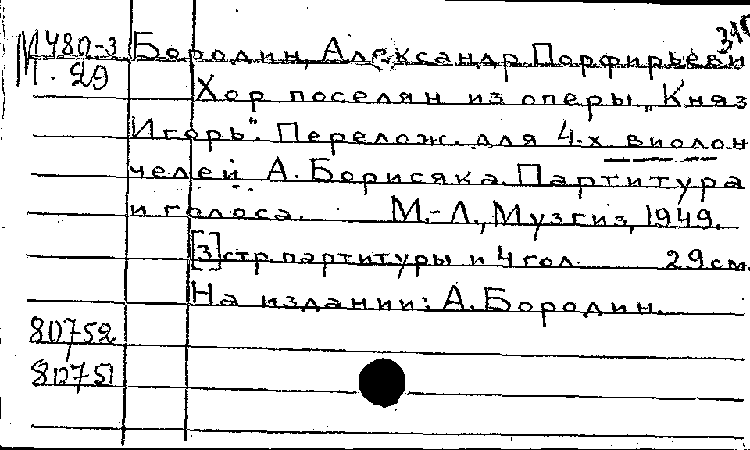 М 480-3 Бородин, Александр Порфирьеви
М. 29
Хор поселян из оперы „Княз
Игорь". Перелож. для 4-х виолон
челей А. Борисяка. Партитура
и голоса. М.-Л., Музгиз, 1949.
[3] стр. партитуры и 4 гол. 29 см.
На издании: А. Бородин.
80752
80751